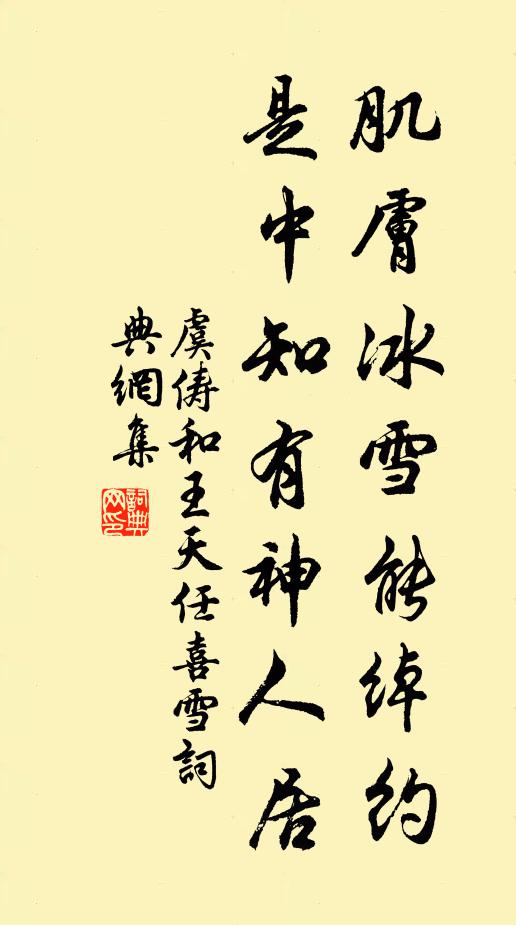 肌膚冰雪能綽約
是中知有神人居
虞儔和王天任喜雪詞
典網集
詞典網印